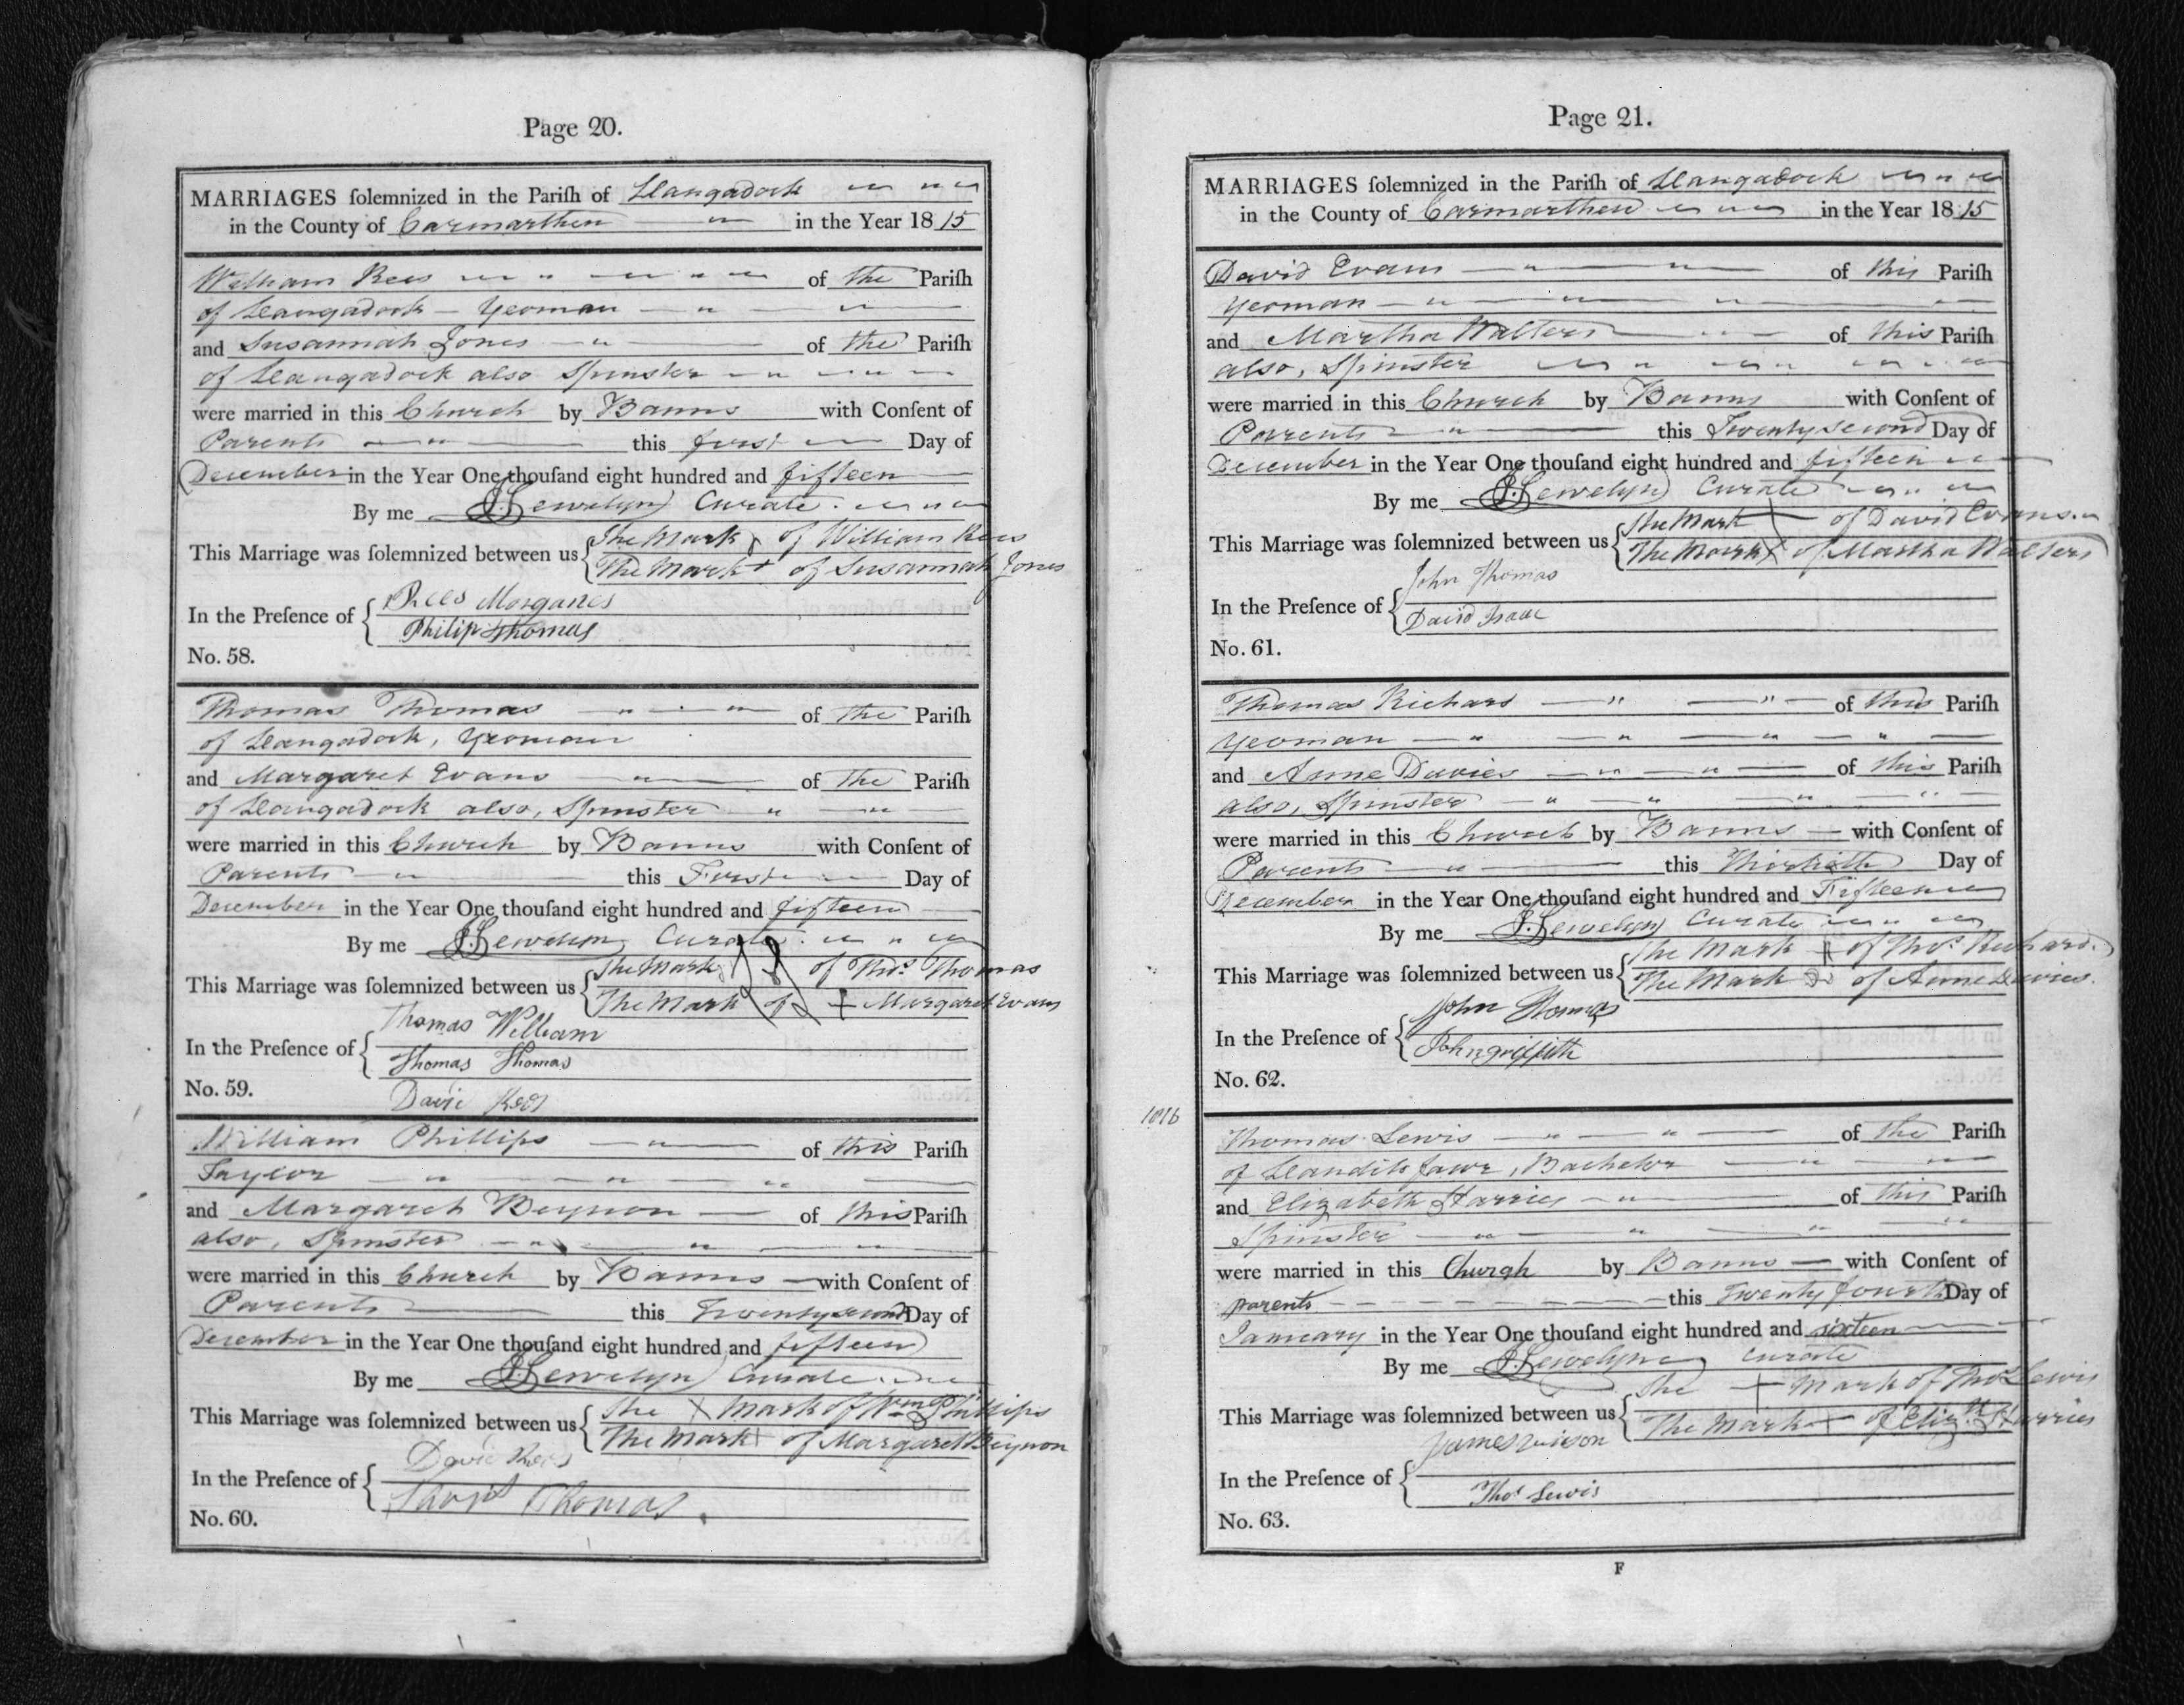 Page 20.
MARRIAGES ſolemnized in the Pariſh of Llangadock
in the County of Carmarthen in the Year 1815
William Rees of the Pariſh
of Llangadock - Yeoman
and Susannah Jones of the Pariſh
of Llangadock also Spinster
were married in this Church by Banns with Conſent of
Parents this first Day of
December in the Year One thouſand eight hundred and fifteen
By me J. Llewelyn Curate.
This Marriage was ſolemnized between us { The Mark x of William Rees
The Mark + of Susannah Jones
In the Preſence of { Rees Morganes
Philip Thomas
No. 58.
Thomas Thomas of the Pariſh
of Llangadock, Yeoman
and Margaret Evans of the Pariſh
of Llangadock also, Spinster
were married in this Church by Banns with Conſent of
Parents this First Day of
December in the Year One thouſand eight hundred and fifteen
By me J. Llewelyn Curate.
This Marriage was ſolemnized between us { The Mark of Thos. Thomas
The Mark of + Margaret Evans
In the Preſence of { Thomas William
Thomas Thomas
No. 59.
David Rees
William Phillips of this Pariſh
Taylor
and Margaret Beynon of this Pariſh
also, Spinster
were married in this Church by Banns with Conſent of
Parents this Twenty second Day of
December in the Year One thouſand eight hundred and fifteen
By me J. Llewelyn Curate
This Marriage was ſolemnized between us { The X Mark of Wm. Phillips
The Mark + of Margaret Beynon
In the Preſence of { David Rees
Thomas
No. 60.
Page 21.
MARRIAGES ſolemnized in the Pariſh of Llangadock
in the County of Carmarthen in the Year 1815
David Evans of this Pariſh
Yeoman
and Martha Walters of this Pariſh
also, Spinster
were married in this Church by Banns with Conſent of
Parents this Twenty second Day of
December in the Year One thouſand eight hundred and fifteen
By me J. Llewelyn Curate
This Marriage was ſolemnized between us { The Mark + of David Evans.
The Mark X of Martha Walters
In the Preſence of { John Thomas
David Isaac
No. 61.
Thomas Richard of this Pariſh
Yeoman
and Anne Davies of this Pariſh
also, Spinster
were married in this Church by Banns with Conſent of
Parents this Thirtieth Day of
December in the Year One thouſand eight hundred and Fifteen
By me J. Llewelyn Curate
This Marriage was ſolemnized between us { The Mark of Thos. Richard.
The Mark of Anne Davies.
In the Preſence of { John Thomas
John griffith
No. 62.
1816
Thomas Lewis of the Pariſh
of Llandilo fawr, Bachelor
and Elizabeth Harries of this Pariſh
Spinster
were married in this Church by Banns with Conſent of
parents this Twenty fourth Day of
January in the Year One thouſand eight hundred and sixteen
By me J. Llewelyn curate
This Marriage was ſolemnized between us { The + Mark of Thos. Lewis
The Mark + of Elizth. Harries
In the Preſence of { James
Thos. Lewis
No. 63.
F